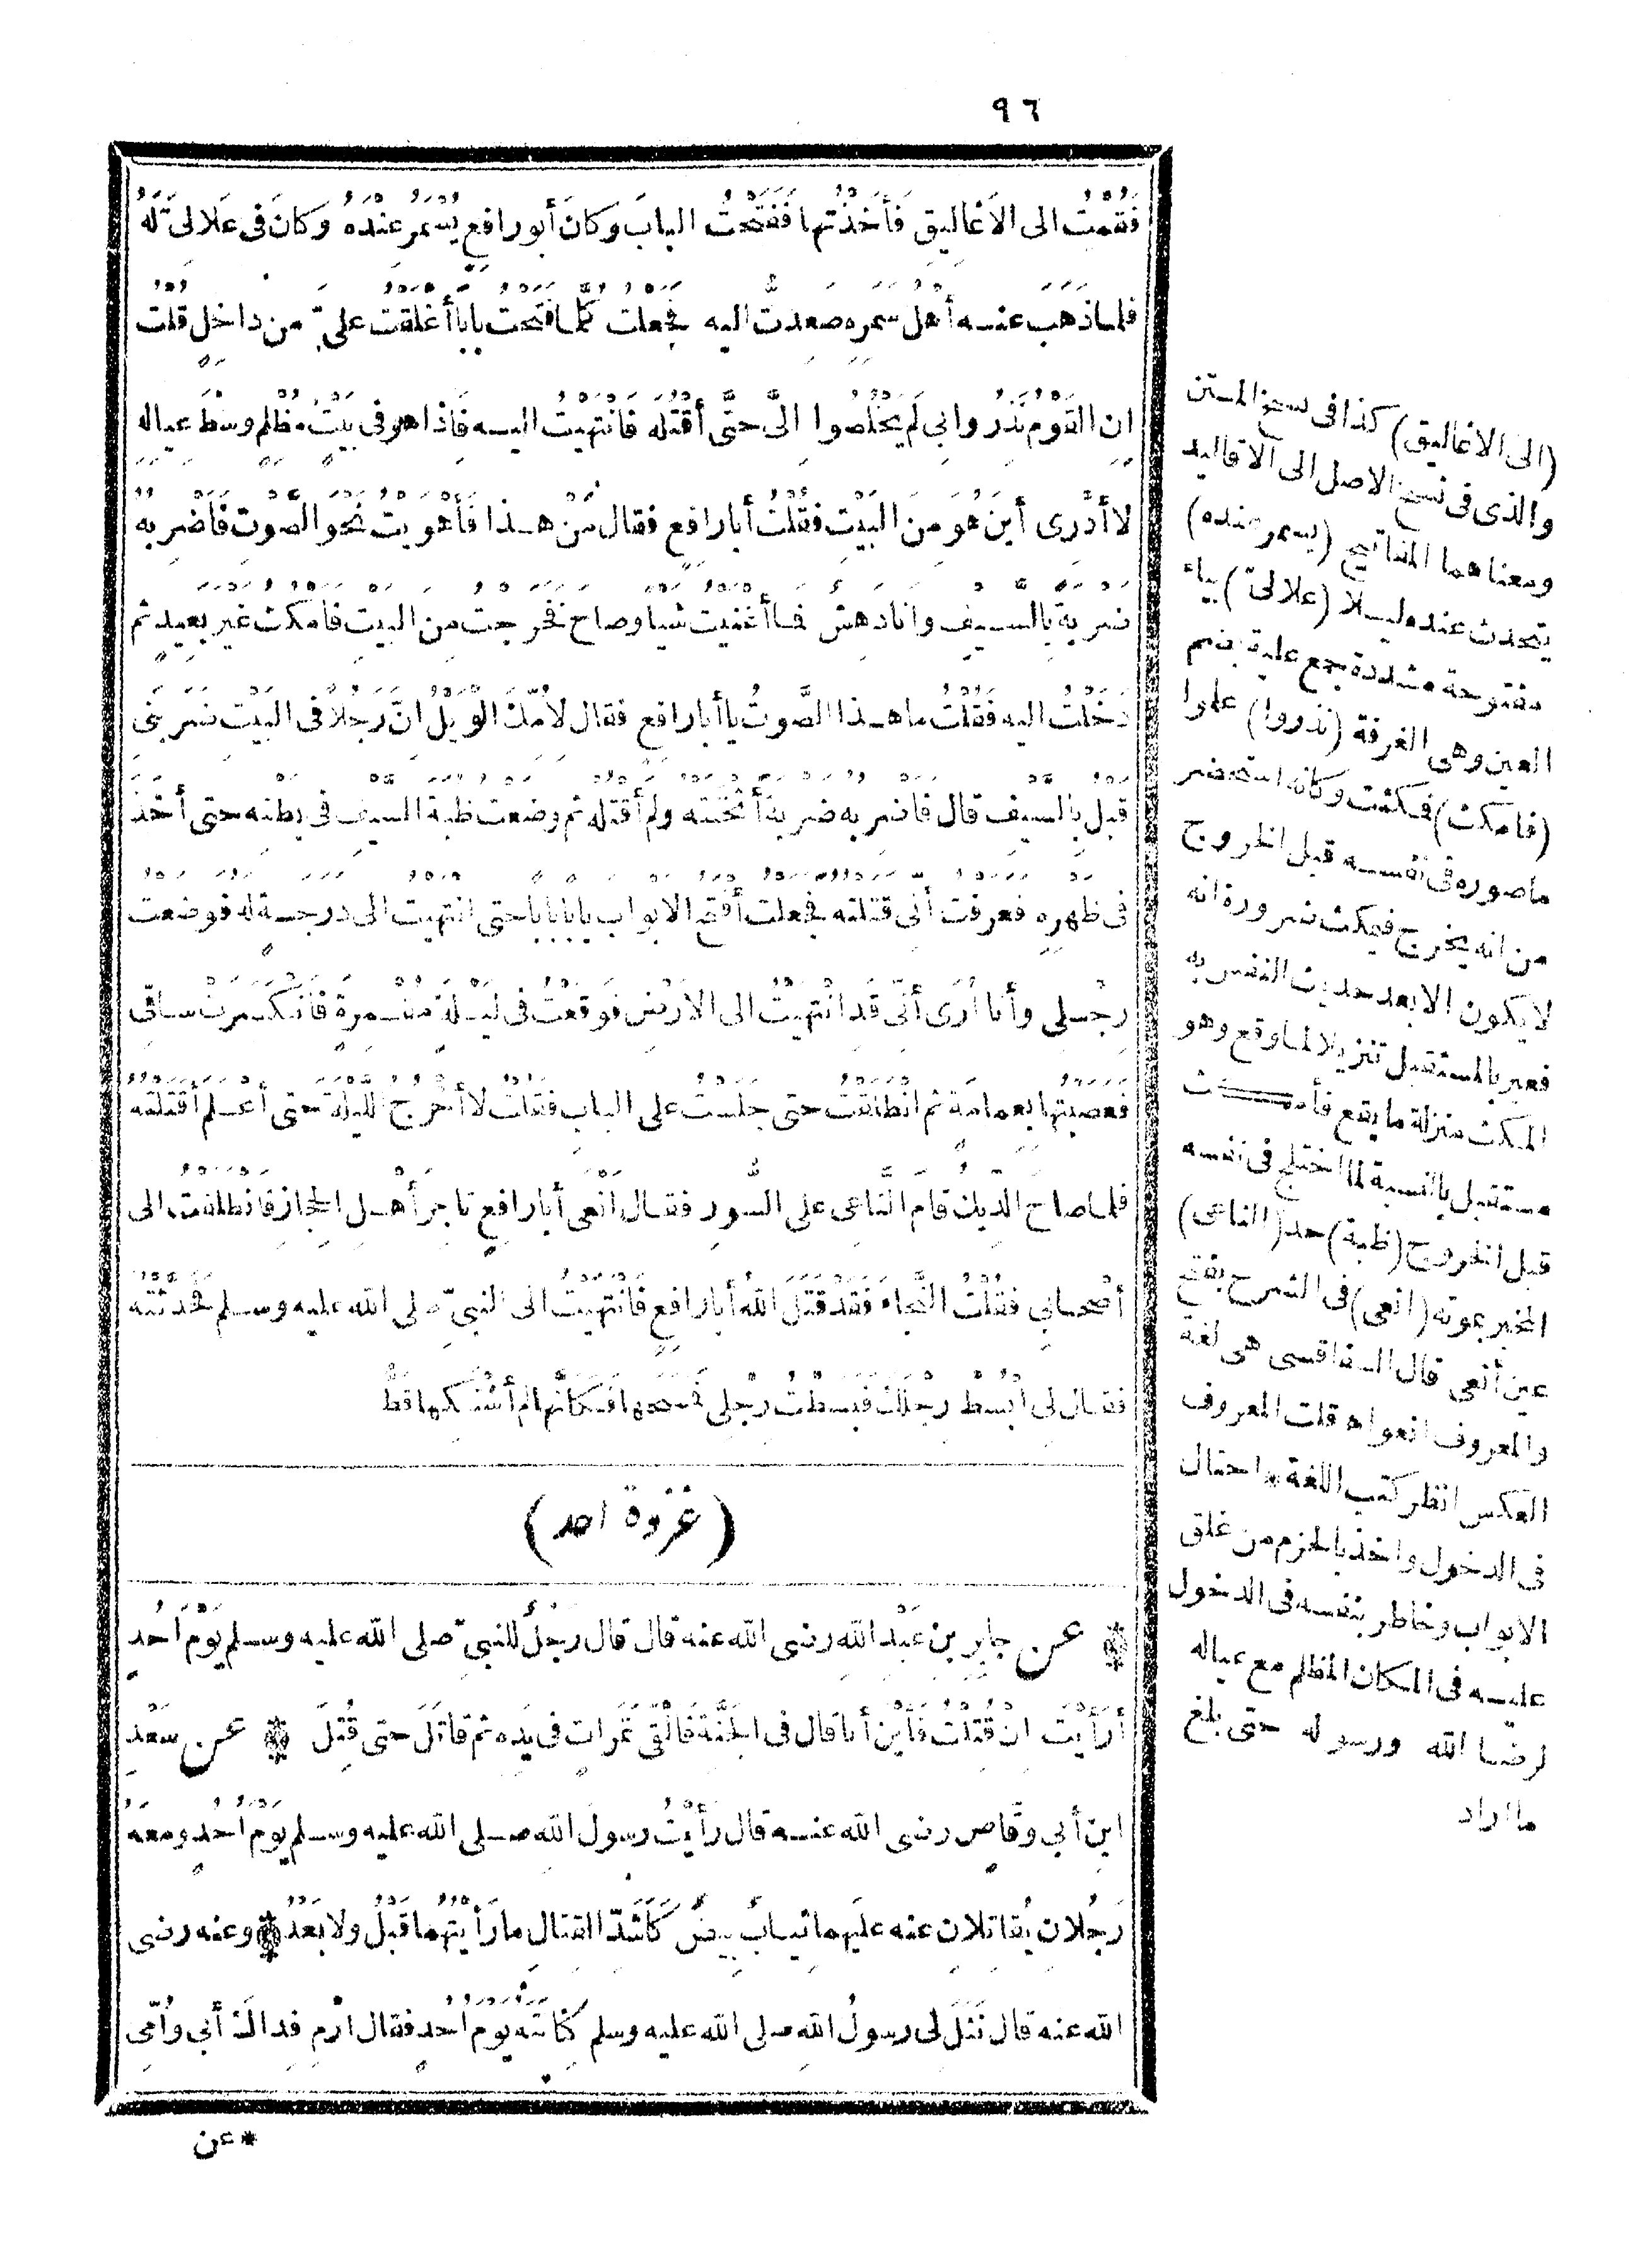 ٩٦
فَقُمْتُ الى الاَغاليقِ فَأَخَذْتُها فَفَتَحْتُ البابَ وكانَ أبو رافعٍ يُسْمَرُ عِنْدَهُ وَكانَ فى عَلالىَّ لَهُ
فلما ذَهَبَ عنه أهْلُ سَمَرِهِ صَعِدْتُ اليه فَجَعَلْتُ كُلَّما فَتَحْتُ بابًا أغْلَقْتُ علىَّ من داخِلٍ قُلْتُ
ان القَوْمُ نَذِرُوا بى لَمْ يَخْلُصُوا الىَّ حتَّى أَقْتُلَهُ فانْتَهَيْتُ اليه فَاذا هو فى بَيْتٍ مُظْلِمٍ وسْطَ عيالِهِ
لا أدْرى أينَ هُوَ مِنَ البَيْتِ فقُلْتُ أبا رافعٍ فقال مَنْ هذا فَأهْوَيْتُ نَحْوَ الصَّوْتِ فَاَضْرِبُهُ
ضَرْبَةً بالسَّيْفِ وانَا دَهِشٌ فَما أغْنَيْتُ شيأً وصاحَ فَخَرَجْتُ مِنَ البَيْتِ فَاَمْكُثُ غَيْرَ بَعِيدٍ ثم
دَخَلْتُ اليه فقُلْتُ ما هذا الصَّوتُ يا أبا رافعٍ فقال لاُمِّكَ الوَيْلُ انَّ رَجُلاً فى البَيْتِ ضَرَبَنى
قبْلُ بالسَّيْفِ قال فاَضْرِبُه ضَرْبَةً أثْخَنَتْه ولم أقتُلْه ثم وضَعْتُ ظُبَةَ السَّيْفِ فى بطْنِه حتى أخَذَ
فى ظَهْرِهِ فعرَفْتُ أنِّى قَتَلْتُه فجعلْتُ أفْتَحُ الابوابَ بابًا بابًا حتى انتهيْتُ الى درجةٍ له فوضَعْتُ
رِجْلى وأنا أُرَى أنِّى قَدِ انْتَهيْتُ الى الاَرْضِ فوقَعْتُ فى لَيْلَةٍ مُقْمِرَةٍ فانْكَسَرَتْ ساقى
فعصَبْتُها بعِمامَةٍ ثم انْطَلَقْتُ حتى جلَسْتُ على البابِ فقُلْتُ لا أخْرُجُ اللَّيْلَةَ حتى أعْلَمَ أقَتَلْتُه
فلما صاحَ الدِّيكُ قامَ النَّاعِى على السُّورِ فقال أنْعَى أبا رافعٍ تاجِرَ أهْلِ الحِجازِ فانْطَلقْتُ الى
أصْحابى فقُلْتُ النَّجاءَ فَقَدْ قَتَلَ اللّهُ أبا رافعٍ فانْتَهَيْتُ الى النبىّ صلى الله عليه وسلم فحدَّثْتُه
فقال لى ابْسُطْ رِجْلَكَ فبَسَطْتُ رِجْلِى فَمَسَحَها فكَأنَّها لم أشْتَكِها قَطُّ
(غزوة احد)
۞ عن جابِرِ بنِ عَبْدِ اللّهِ رضى الله عنه قال قال رَجُلٌ للنبىّ صلى الله عليه وسلم يَوْمَ اُحُدٍ
أرَأيْتَ انْ قُتِلْتُ فأيْنَ أنا قال فى الجَنَّةِ فَألْقَى تَمَراتٍ فى يَدِه ثم قاتَلَ حتى قُتِلَ ۞ عن سَعْدِ
ابنِ أبى وقَّاصٍ رضى الله عنه قال رَأَيْتُ رسولَ اللهِ صلى الله عليه وسلم يَوْمَ اُحُدٍ ومعَهُ
رَجُلانِ يُقاتِلانِ عنه عليهما ثيابٌ بيضٌ كَأشَدِّ القِتالِ ما رَأيْتُهُما قَبْلُ ولا بَعْدُ ۞ وعنه رضى
الله عنه قال نَثَلَ لى رسولُ اللهِ صلى الله عليه وسلم كِنانَتَه يَوْمَ اُحُدٍ فقال ارْمِ فِداكَ أبى واُمّى
*عن
(الى الاغاليق) كذا فى نسخ المتن
والذى فى نسخ الاصل الى الاقاليد
ومعناهما المفاتيح (يسمر عنده)
يتحدث عنده ليلا (علالىّ) بياء
مفتوحة مشددة جمع علية بضم
العين وهى الغرفة (نذروا) علموا
(فامكث) فمكثت وكأنه استحضر
ما صوره فى نفسه قبل الخروج
من انه يخرج فيمكث ضرورة انه
لا يكون الا بعد حديث النفس به
فعبر بالمستقبل تنزيلا لما وقع وهو
المكث منزلة ما يقع فأمكث
مستقبل بالنسبة لما اختلج فى نفسه
قبل الخروج (ظبة) حد (الناعى)
المخبر بموته (انعى) فى الشرح بفتح
عين أنعى قال السفاقسى هى لغة
والمعروف انعوا اه قلت المعروف
العكس انظر كتب اللغة * احتال
فى الدخول واخذ بالحزم من غلق
الابواب وخاطر بنفسه فى الدخول
عليه فى المكان المظلم مع عياله
لرضا الله ورسوله حتى بلغ
ما اراد